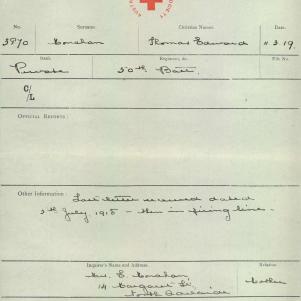 SOCIETY
No. Surname. Christian Names. Date.
3870 Monahan Thomas Edward 11.3.19.
Rank. Regiment, &c. File No.
Private 50th Batt.
C/L
OFFICIAL REPORTS:
Other Information: Last letter received dated
5th July 1918 – then in firing line.
Inquirer's Name and Address. Relation
Mrs. E. Monahan Mother
14 Margaret St.
North Adelaide